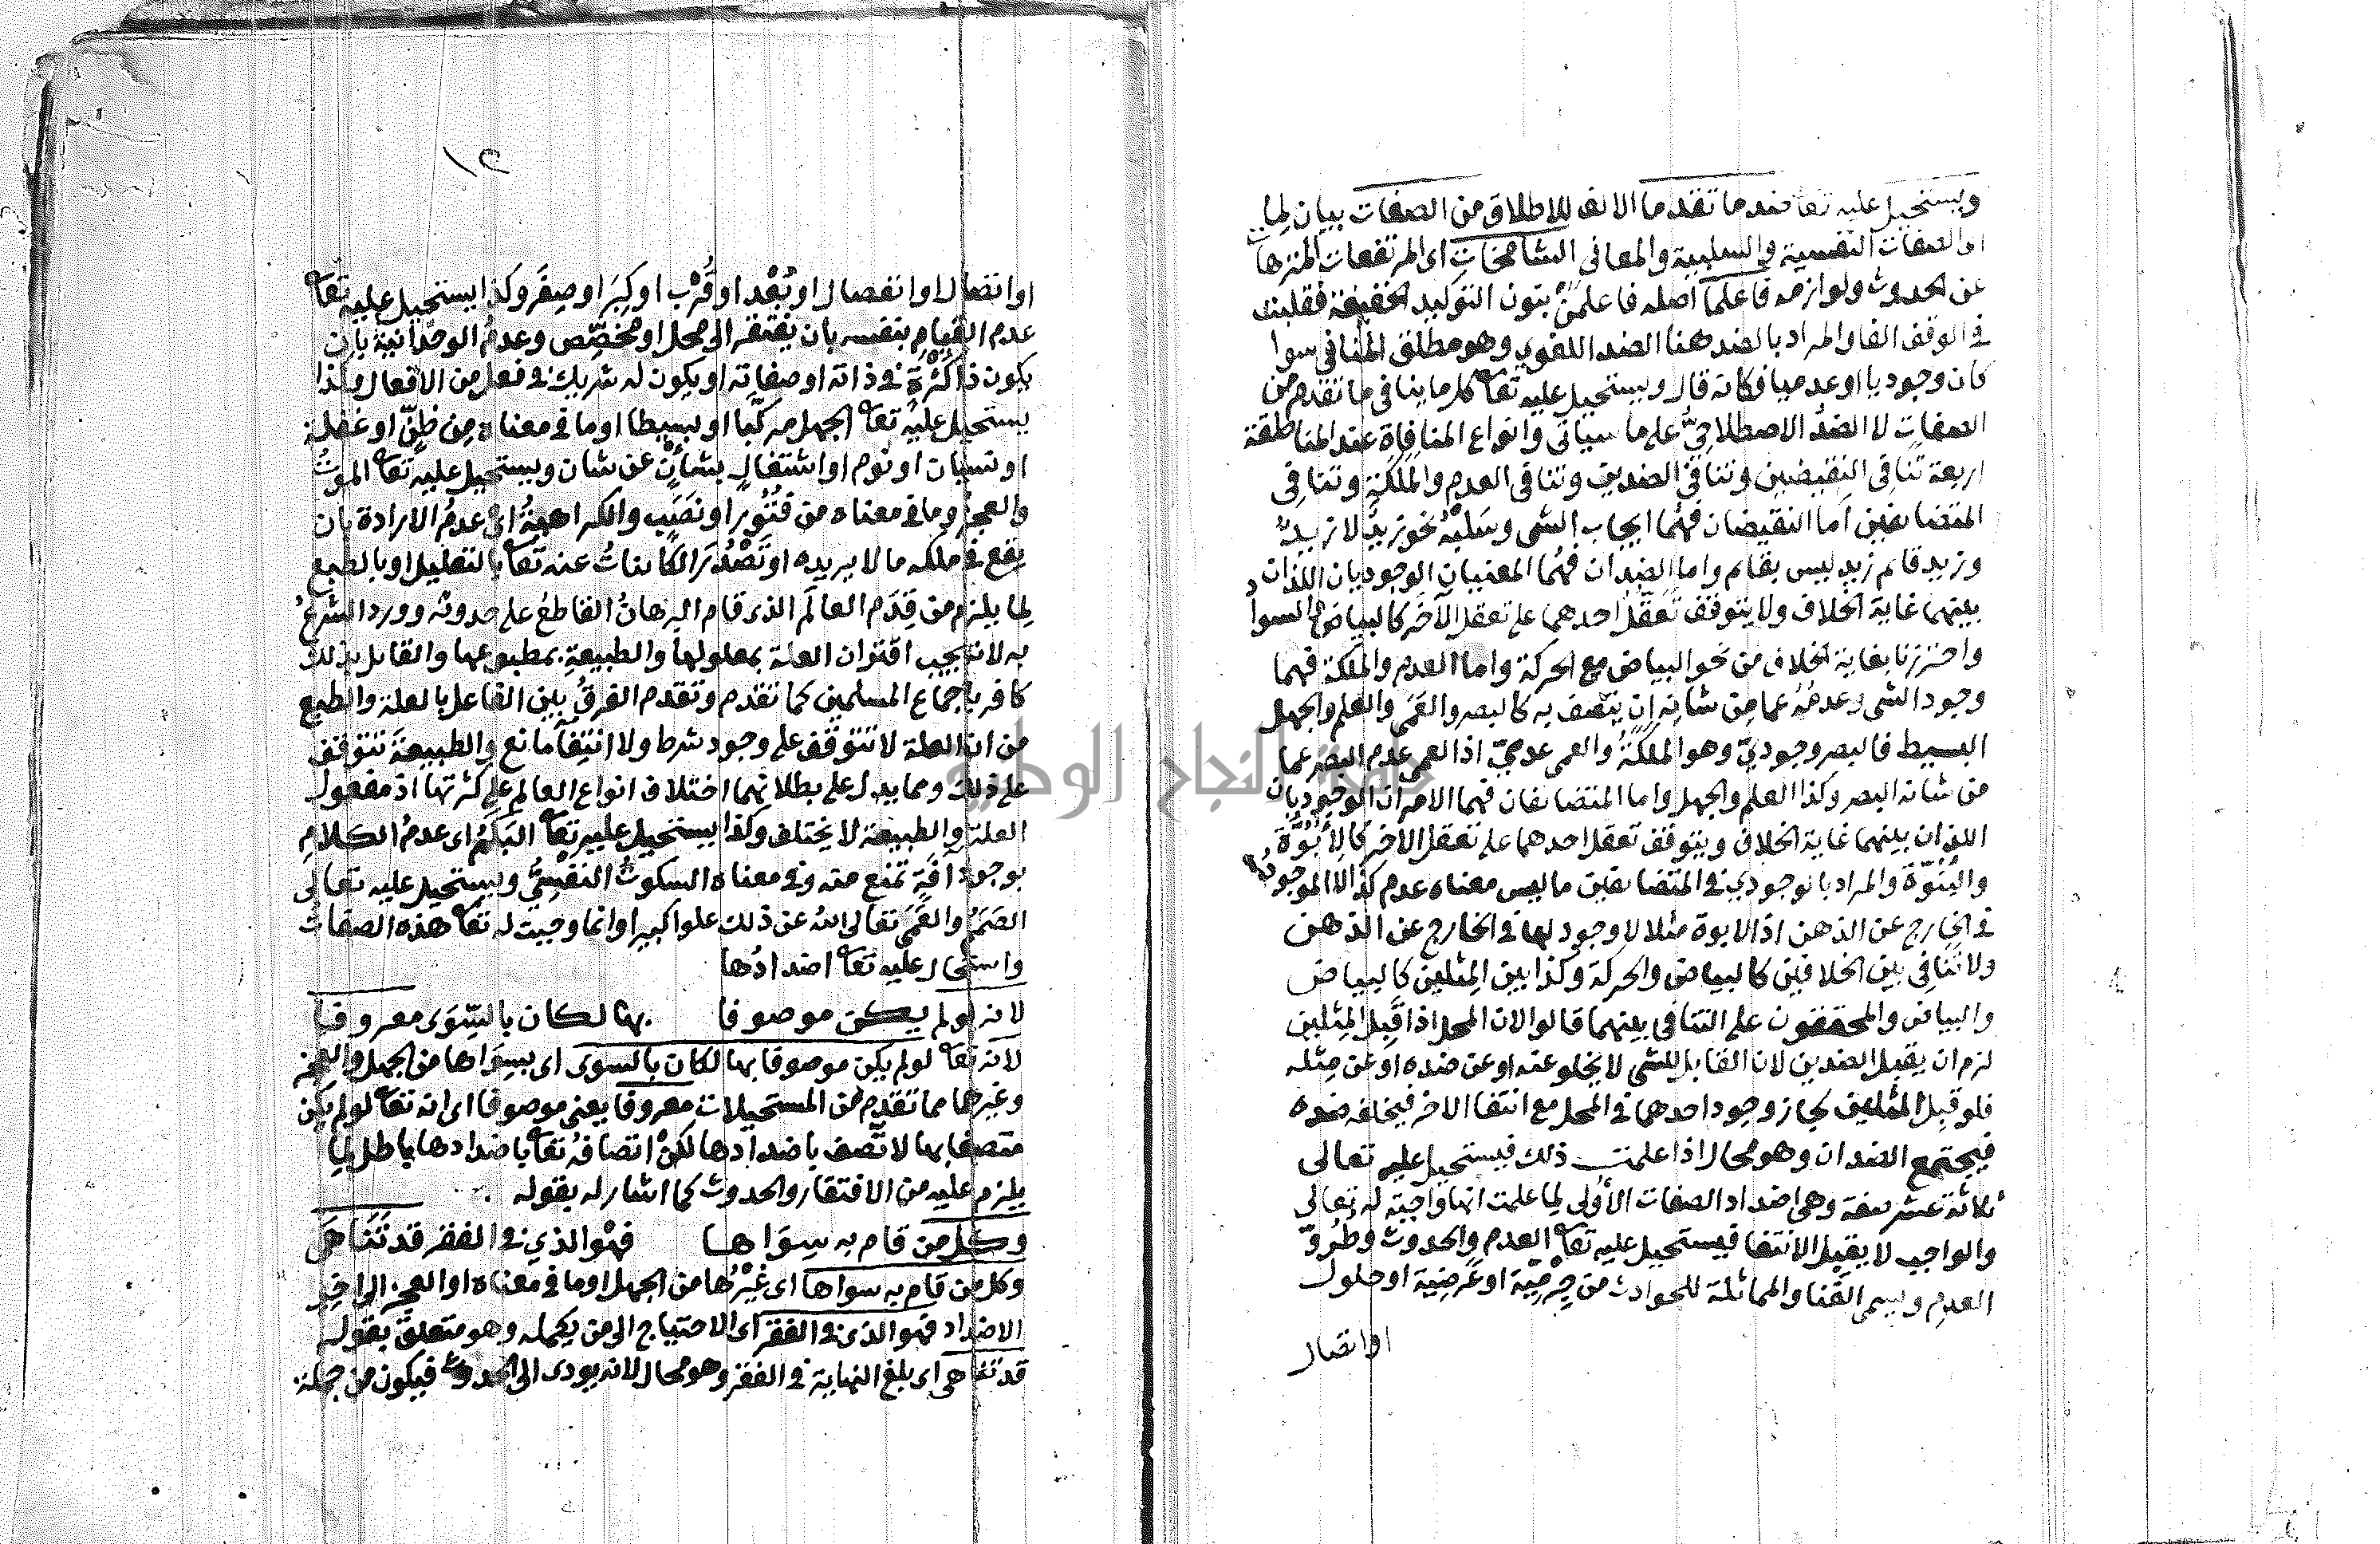 ويستحيل عليه تعا ضد ما تقدما الالف للاطلاق من الصفات بيان لما
اى الصفات النفسية والسلبية والمعانى الشامخات اى المرتفعات المنزهات
عن الحدوث ولوازمه فاعلما اصله فاعلمن بنون التوكيد الخفيفة فقلبت
فى الوقف الفا والمراد بالضد هنا الضد اللغوي وهو مطلق المنافى سوا
كان وجوديا او عدميا فكانه قال ويستحيل عليه تعا كل ما ينافى ما تقدم من
الصفات لا الضد الاصطلاحى على ما سياتى وانواع المنافاة عند المناطقة
اربعة تنافى النقيضين وتنافى الضدين وتنافى العدم والملكة وتنافى
المتضايفين اما النقيضان فهما ايجاب الشى وسلبه نحو زيد لا زيد
وزيد قايم زيد ليس بقايم واما الضدان فهما المعنيان الوجوديان اللذان
بينهما غاية الخلاف ولا يتوقف تعقل احدهما على تعقل الآخر كالبياض والسواد
واحترزنا بغاية الخلاف من نحو البياض مع الحركة واما العدم والملكة فهما
وجود الشى وعدمه عما من شانه ان يتصف به كالبصر والعمى والعلم والجهل
البسيط فالبصر وجودي وهو الملكة والعمى عدمي اذ العمى عدم البصر عما
من شانه البصر وكذا العلم والجهل واما المتضايفان فهما الامران الوجوديان
اللذان بينهما غاية الخلاف ويتوقف تعقل احدهما على تعقل الاخر كالابوة
والبنوة والمراد بالوجودي فى المتضايفين ما ليس معناه عدم كذا لا الموجود
فى الخارج عن الذهن اذ الابوة مثلا لا وجود لها فى الخارج عن الذهن
ولا تنافى بين الخلافين كالبياض والحركة وكذا بين المثلين كالبياض
والبياض والمحققون على التنافى بينهما قالوا لان المحل اذا قبل المثلين
لزم ان يقبل الضدين لان القابل للشى لا يخلو عنه او عن ضده او عن مثله
فلو قبل المثلين لجاز وجود احدهما فى المحل مع انتفا الاخر فيخلفه ضده
فيجتمع الضدان وهو محال اذا علمت ذلك فيستحيل عليه تعالى
ثلاثة عشر صفة وهى اضداد الصفات الأولى لما علمت انها واجبة له تعالى
والواجب لا يقبل الانتفا فيستحيل عليه تعا العدم والحدوث وطرو
العدم ويسمى الفنا والمماثلة للحوادث من جرمية او عرضية او حلول
او اتصال
١٢
او اتصال او انفصال او بُعْد او قُرْب او كِبَر او صِغَر وكذا يستحيل عليه تعا
عدم القيام بنفسه بان يفتقر الى محل او مخصّص وعدم الوحدانية بان
يكون ذا كثرة فى ذاته او صفاته او يكون له شريك فى فعل من الافعال وكذا
يستحيل عليه تعا الجهل مركّبا او بسيطا او ما فى معناه من ظنّ او غفلة
او نسيان او نوم او اشتغال بشأن عن شان ويستحيل عليه تعا الموتُ
والعجز وما فى معناه من فُتُور او نَصَب والكراهة اى عدم الارادة بان
يقع فى ملكه ما لا يريده او تَصْدُرَ الكاينات عنه تعا بالتعليل او بالطبع
لما يلزم من قِدَم العالَم الذى قام البرهان القاطع على حدوثه وورد الشرع
به لانه يجب اقتران العلة بمعلولها والطبيعة بمطبوعها والقايل بذلك
كافر باجماع المسلمين كما تقدم وتقدم الفرق بين الفاعل بالعلة والطبع
من ان العلة لا تتوقف على وجود شرط ولا انتفآ مانع والطبيعة تتوقف
على ذلك ومما يدل على بطلانهما اختلاف انواع العالم على كثرتها اذ مفعول
العلة والطبيعة لا يختلف وكذا يستحيل عليه تعا البَكَم اى عدم الكلام
بوجود آفة تمنع منه وفى معناه السكوت النفسي ويستحيل عليه تعالى
الصَمَم والعَمَى تعالى الله عن ذلك علوا كبيرا وانما وجبت له تعا هذه الصفات
واستحال عليه تعا اضدادُها
لانه لو لم يكن موصوفا بها لكان بالسِّوَى معروفا
لانه تعا لو لم يكن موصوفا بها لكان بالسوى اى بسواها من الجهل والعجز
وغيرهما مما تقدم من المستحيلات معروفا يعنى موصوفا اى انه تعا لو لم يكن
متصفا بها لاتّصف باضدادها لكن اتصافه تعا باضدادها باطل لما
يلزم عليه من الافتقار والحدوث كما اشار له بقوله
وكل من قام به سواها فهْو الذي فى الفقر قد تَنَاهَى
وكل من قام به سواها اى غيرُها من الجهل او ما فى معناه او العجز الى اخر
الاضداد فهو الذى فى الفقر اى الاحتياج الى من يكمله وهو متعلق بقوله
قد تناهى اى بلغ النهاية فى الفقر وهو محال لانه يودى الى الحدوث فيكون من جملة